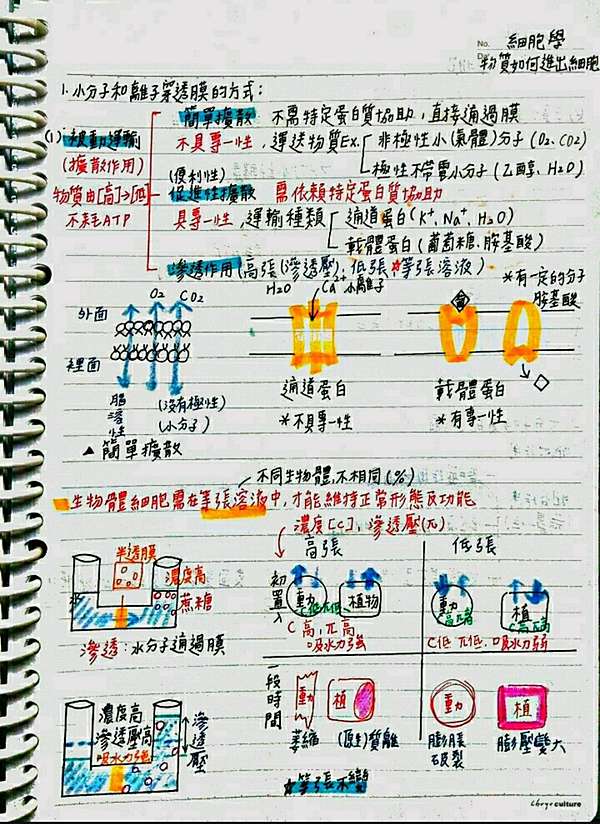 No. 細胞學
物質如何進出細胞
1.小分子和離子穿透膜的方式:
簡單擴散 不需特定蛋白質協助,直接通過膜
(1)被動運輸 不具專一性,運送物質Ex. 非極性小(氣體)分子(O₂、CO₂)
(擴散作用) (便利性) 極性不帶電小分子(乙醇、H₂O)
物質由[高]→[低] 促進性擴散 需依賴特定蛋白質協助
不耗ATP 具專一性,運輸種類 通道蛋白(K⁺、Na⁺、H₂O)
載體蛋白(葡萄糖、胺基酸)
滲透作用(高張(滲透壓);低張;等張溶液)
*有一定的分子
O₂ CO₂ H₂O Ca⁺ 小離子 胺基酸
外面
裡面
脂溶性 (沒有極性) 通道蛋白 載體蛋白
(小分子) *不具專一性 *有專一性
▲簡單擴散
不同生物體,不相同(%)
生物體細胞需在等張溶液中,才能維持正常形態及功能
濃度[C],滲透壓(π)
高張 低張
半透膜 濃度高 初置入 動 植物 動 植
水 蔗糖
C高,π高 C低π低,吸水力弱
滲透:水分子通過膜 吸水力強
濃度高 一段時間 動 植 動 植
滲透壓高 滲透壓
吸水力強 萎縮 (原生)質離 膨脹破裂 膨壓變大
☆等張不變
culture